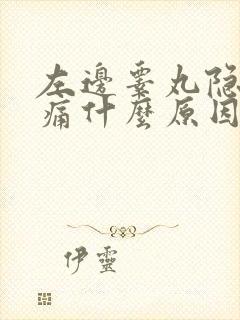 左邊睾丸隐
痛什麼原因
伊靈